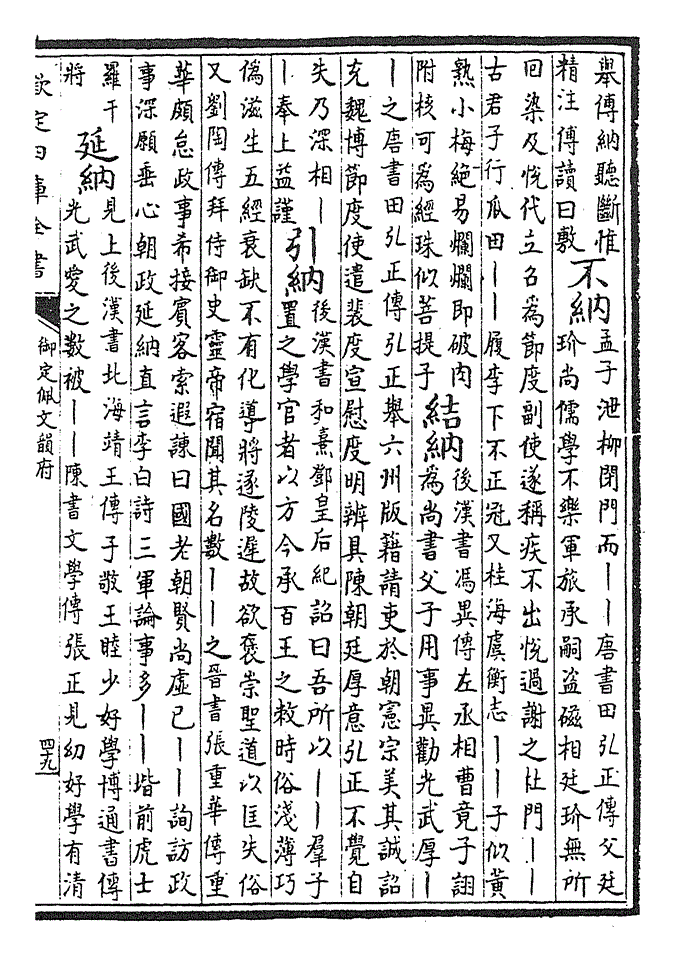 舉傳納聽斷惟
精注傳讀曰敷
不納
孟子泄柳閉門而丨丨唐書田弘正傳父廷
玠尚儒學不樂軍旅承嗣盜磁相廷玠無所
回染及悅代立召為節度副使遂稱疾不出悅過謝之杜門丨丨
古君子行瓜田丨丨履李下不正冠又桂海虞衡志丨丨子似黃
熟小梅絶易爛爛即破肉
附核可為經珠似菩提子
結納
後漢書馮異傳左丞相曹竟子詡
為尚書父子用事異勸光武厚丨
丨之唐書田弘正傳弘正舉六州版籍請吏於朝憲宗美其誠詔
充魏博節度使遣裴度宣慰度明辨具陳朝廷厚意弘正不覺自
失乃深相丨
丨奉上益謹
引納
後漢書和熹鄧皇后紀詔曰吾所以丨丨羣子
置之學官者以方今承百王之敉時俗淺薄巧
偽滋生五經衰缺不有化導將遂陵遲故欲褒崇聖道以匡失俗
又劉陶傳拜侍御史靈帝宿聞其名數丨丨之晉書張重華傳重
華頗怠政事希接賓客索遐諫曰國老朝賢尚虛已丨丨詢訪政
事深願垂心朝政延納直言李白詩三軍論事多丨丨堦前虎士
羅干
將
延納
見上後漢書北海靖王傳子敬王睦少好學博通書傳
光武愛之數被丨丨陳書文學傳張正見幼好學有清
欽定四庫全書
御定佩文韻府
四十九